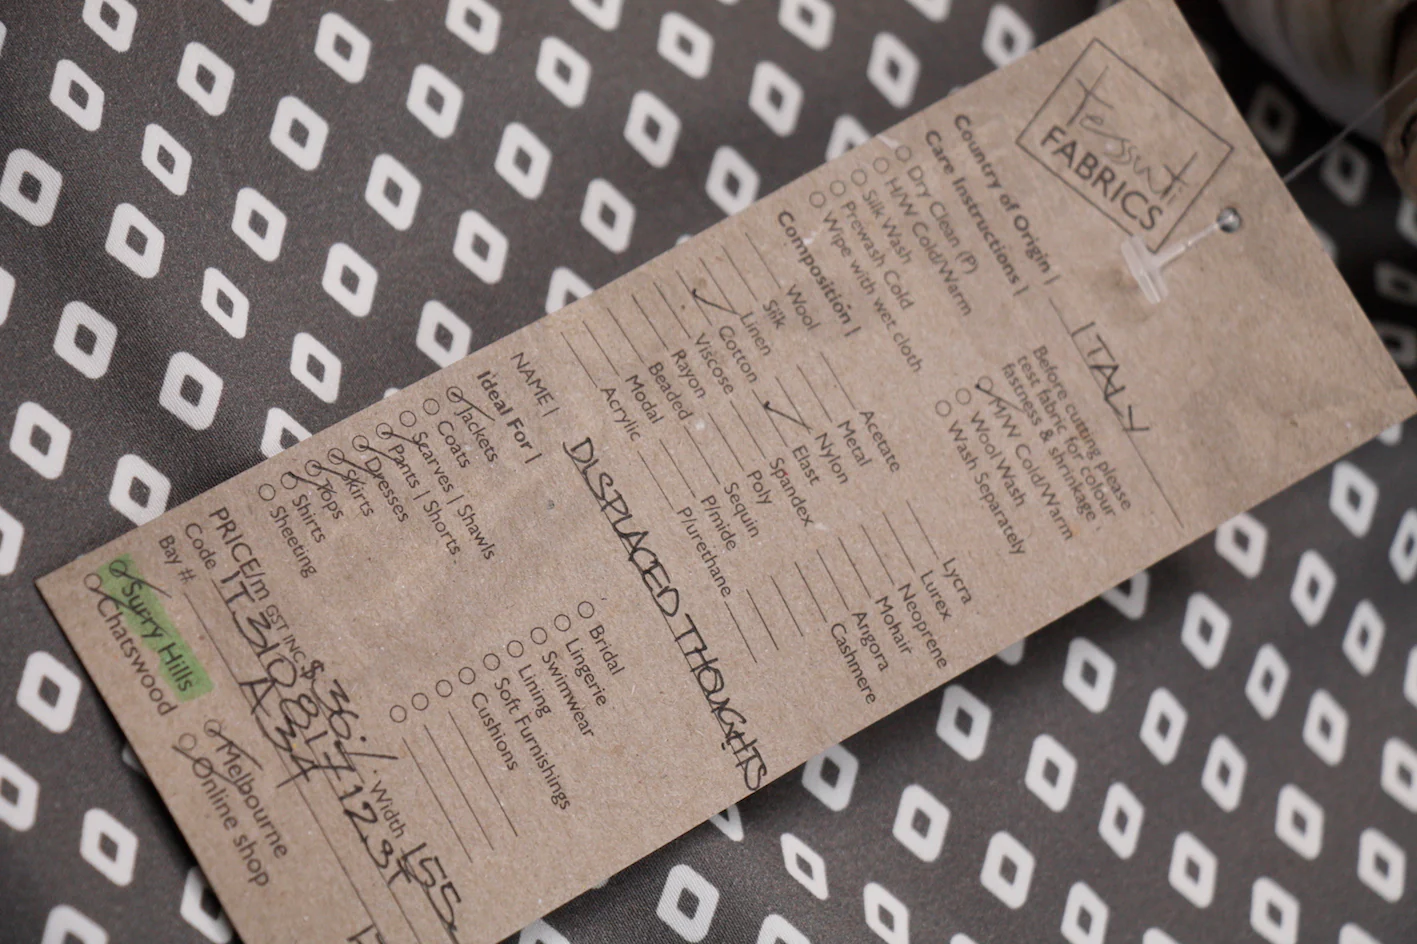 Tessuti
FABRICS
Country of Origin | ITALY
Care Instructions |
Before cutting please
test fabric for colour
fastness & shrinkage
Dry Clean (P)
H/W Cold/Warm
Silk Wash
Prewash Cold
Wipe with wet cloth
M/W Cold/Warm
Wool Wash
Wash Separately
Composition |
Wool
Silk
Linen
Cotton
Viscose
Rayon
Beaded
Modal
Acrylic
Acetate
Metal
Nylon
Elast
Spandex
Poly
Sequin
P/mide
P/urethane
Lycra
Lurex
Neoprene
Mohair
Angora
Cashmere
NAME | DISPLACED THOUGHTS
Ideal For |
Jackets
Coats
Scarves | Shawls
Pants | Shorts
Dresses
Skirts
Tops
Shirts
Sheeting
Bridal
Lingerie
Swimwear
Lining
Soft Furnishings
Cushions
PRICE/m GST INC $ 36./. Width 155
Code
Bay #
Surry Hills
Chatswood
Melbourne
Online shop